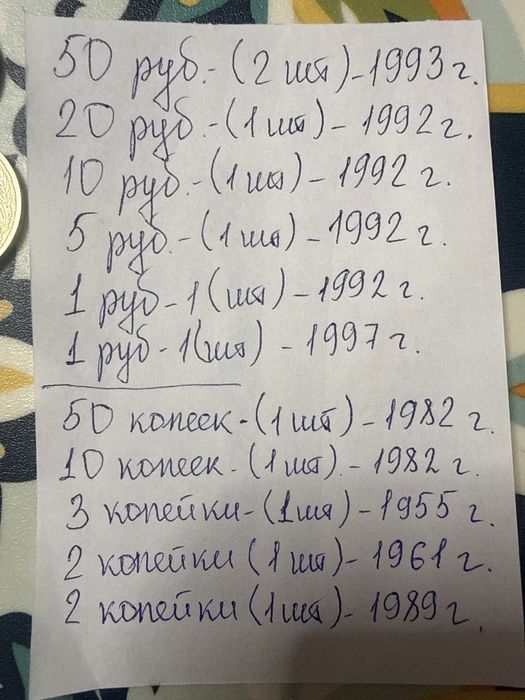 50 руб.-(2 шт)-1993 г.
20 руб.-(1 шт)-1992 г.
10 руб.-(1 шт)-1992 г.
5 руб.-(1 шт)-1992 г.
1 руб-1(шт)-1992 г.
1 руб-1(шт)-1997 г.
50 копеек-(1 шт)-1982 г.
10 копеек-(1 шт).-1982 г.
3 копейки-(1шт)-1955 г.
2 копейки (1 шт)-1961 г.
2 копейки (1 шт)-1989 г.